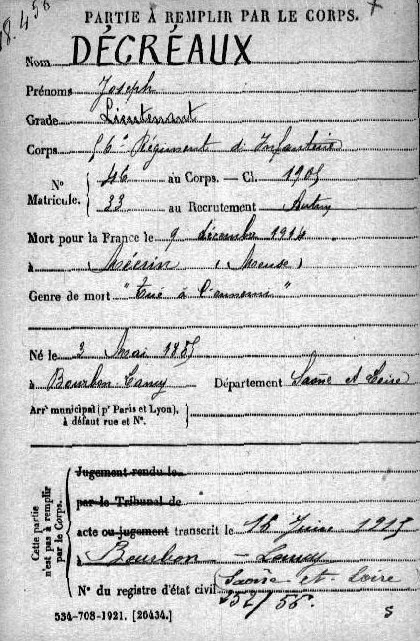 PARTIE À REMPLIR PAR LE CORPS.
Nom DÉCRÉAUX
Prénoms Joseph
Grade Lieutenant
Corps 56e Régiment d'Infanterie
N° Matricule. 46 au Corps. — Cl. 1905
33 au Recrutement Autun
Mort pour la France le 9 décembre 1914
à Mécrin (Meuse)
Genre de mort "Tué à l'ennemi"
Né le 3 Mai 1885
à Bourbon-Lancy Département Saône et Loire
Arr' municipal (p' Paris et Lyon),
à défaut rue et N°.
Cette partie n'est pas à remplir par le Corps.
Jugement rendu le
par le Tribunal de
acte ou jugement transcrit le 15 Juin 1915
à Bourbon-Lancy
(Saône et Loire
N° du registre d'état civil 552/55.
534-708-1921. [26434.]